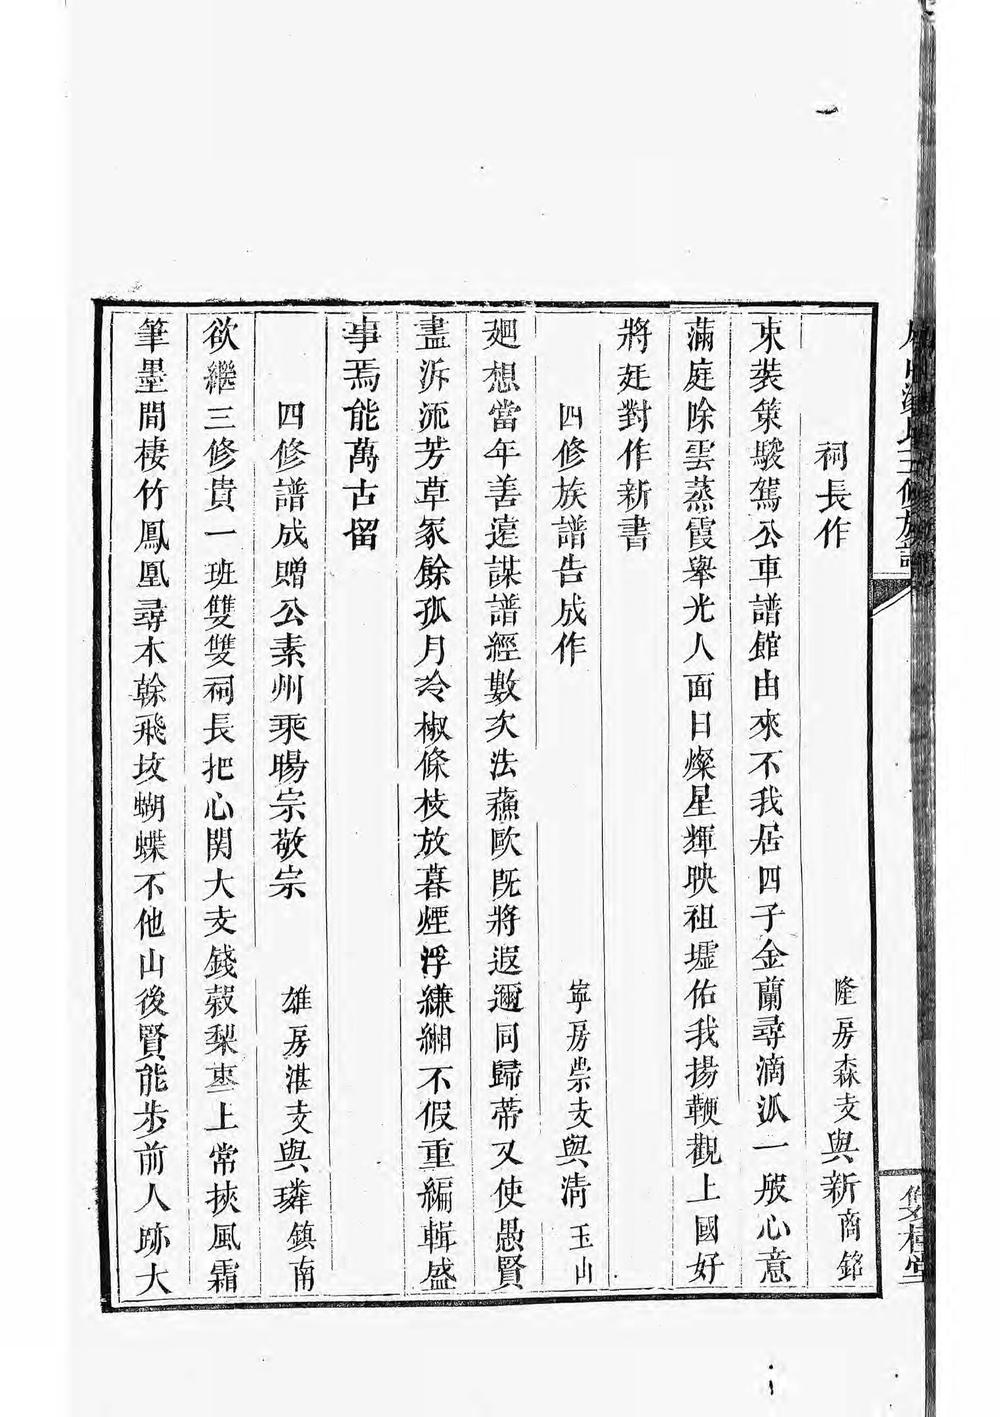 祠長作　隆房森支與新商銘
束裝策駿駕公車譜館由來不我居四子金蘭尋滴派一般心意
滿庭除雲蒸霞舉光人面日燦星輝映祖壚佑我揚鞭觀上國好
將廷對作新書
四修族譜告成作　寧房崇支與清玉山
廻想當年善遠謀譜經數次法蘓歐既將遐邇同歸蒂又使愚賢
盡泝流芳草冢餘孤月冷椒條枝放暮煙浮縑緗不假重編輯盛
事焉能萬古留
四修譜成贈公素州乘暘宗敬宗　雄房湛支與璘鎮南
欲繼三修貴一班雙雙祠長把心関大支錢穀梨棗上常挾風霜
筆墨間棲竹鳳凰尋木榦飛坟蝴蝶不他山後賢能步前人跡大